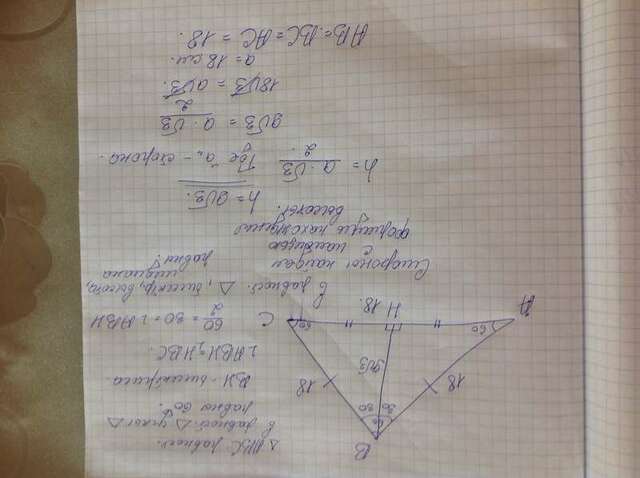 △ABC равнос.
в равнос. △ углы △
равны 60°
BH - биссектриса.
∠ABH = HBC.
60/2 = 30 = ∠ABH
в равнос. △, биссектр, высота,
медиана
равны.
B
60
30 30
18
18
9√3
60
60
A
H
18.
C
Стороны найдем
с помощью
формулы
высоты.
h = a · √3 / 2
h = 9√3.
Где "a" - сторона.
9√3 = a · √3 / 2
18√3 = a√3.
a = 18 см.
AB = BC = AC = 18.